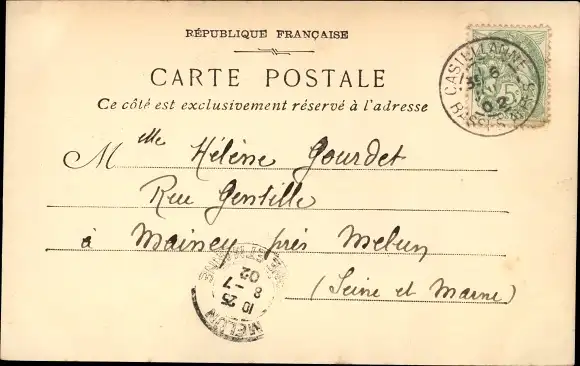 RÉPUBLIQUE FRANÇAISE
CARTE POSTALE
Ce côté est exclusivement réservé à l'adresse
CASTELLANNE
6
02
BASSES-ALPES
5
Mlle Hélène Gourdet
Rue Gentille
à Maincy près Melun
(Seine et Marne)
MELUN
10 25
8 -7
02